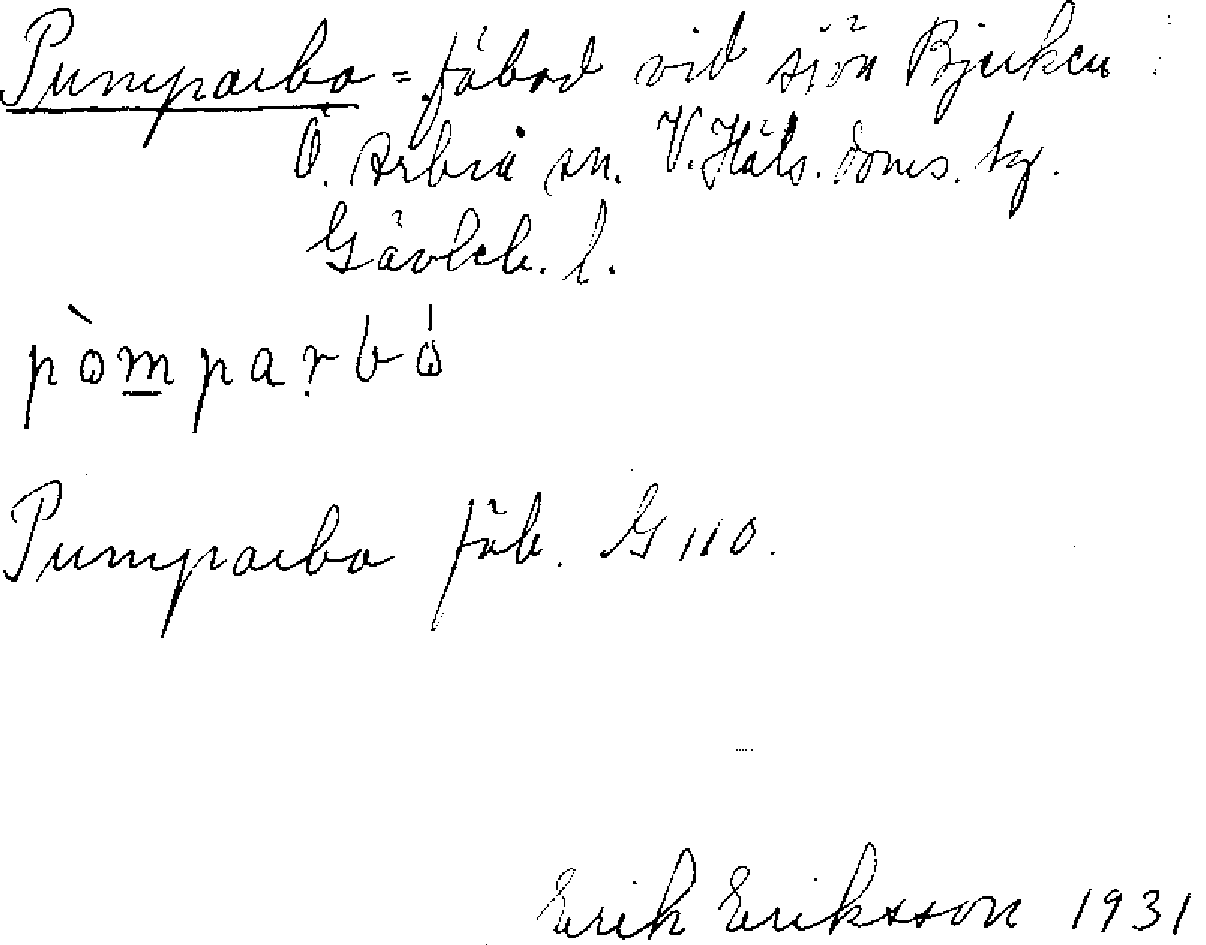 Pumparbo = fäbod vid sjön Bjurken i
Ö. Arbrå sn. V. Häls. doms. hg.
Gävleb. l.
pòmparbó
Pumparbo fäb. G 110.
Erik Eriksson 1931